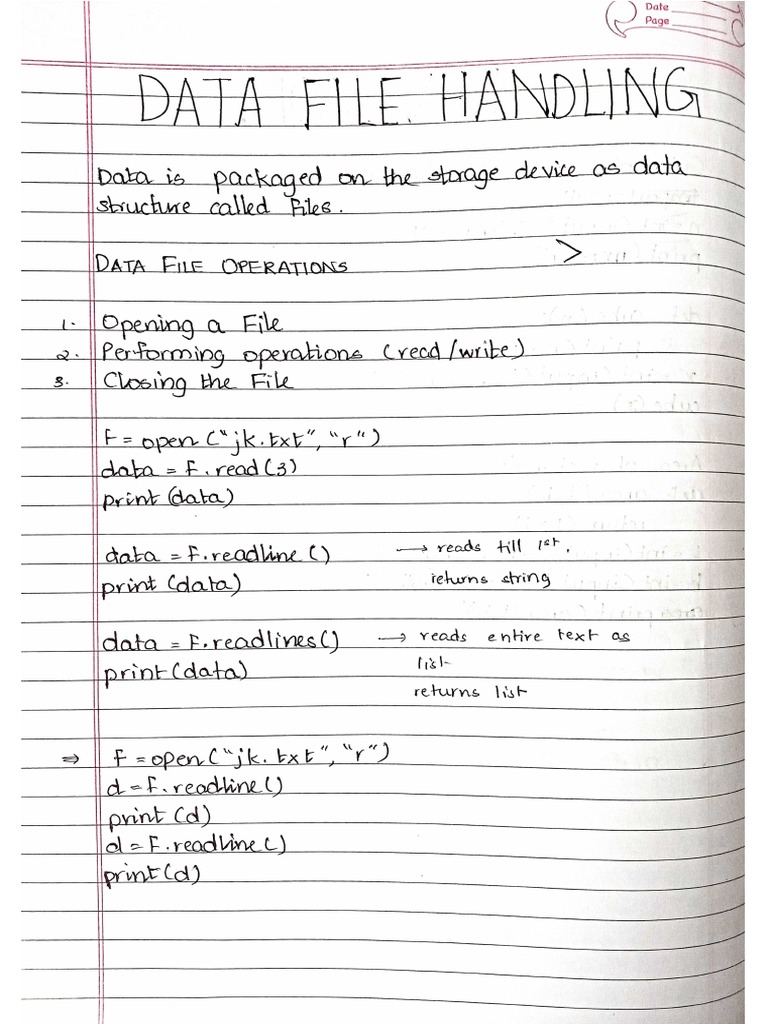 Date
Page
DATA FILE. HANDLING
Data is packaged on the storage device as data
structure called files.
DATA FILE OPERATIONS >
1. Opening a File
2. Performing operations (read/write)
3. Closing the File
f = open ("jk.txt", "r")
data = f.read(3)
print (data)
data = f.readline () → reads till 1st.
print (data) returns string
data = f.readlines() → reads entire text as
print (data) list
returns list
⇒ f = open ("jk.txt", "r")
d = f.readline()
print (d)
d = f.readline()
print (d)